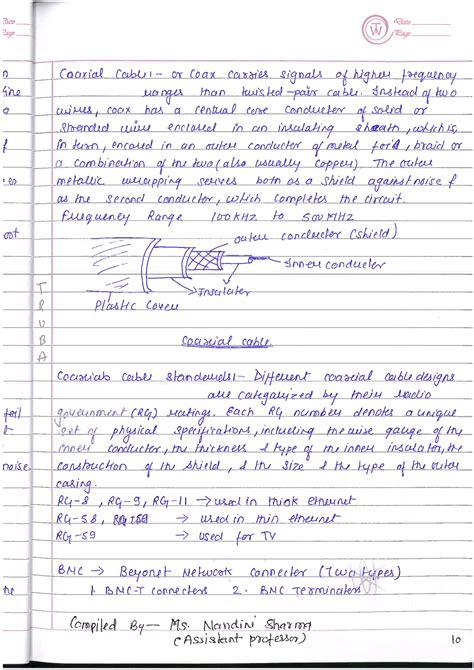 Date
Page
Coaxial Cable:- or Coax carries signals of higher frequency
ranges than twisted-pair cable. Instead of two
wires, coax has a central core conductor of solid or
stranded wire enclosed in an insulating sheath, which is,
in turn, encased in an outer conductor of metal foil, braid or
a combination of the two (also usually copper). The outer
metallic wrapping serves both as a shield against noise &
as the second conductor, which completes the circuit.
Frequency Range 100 KHZ to 500 MHZ
outer conductor (shield)
Inner conductor
Insulator
Plastic Cover
Coaxial cable
TRUBA
Coaxial cable standards:- Different coaxial cable designs
are categorized by their radio
government (RG) ratings. Each RG number denotes a unique
set of physical specifications, including the wire gauge of the
inner conductor, the thickness & type of the inner insulator, the
construction of the shield, & the size & the type of the outer
casing.
RG-8, RG-9, RG-11 → used in thick ethernet
RG-58, → used in thin ethernet
RG-59 → used for TV
BNC → Network Connecter (Two types)
1. BNC-T connecters 2. BNC Terminators
Compiled By— Ms. Nandini Sharma
(Assistant professor)
10